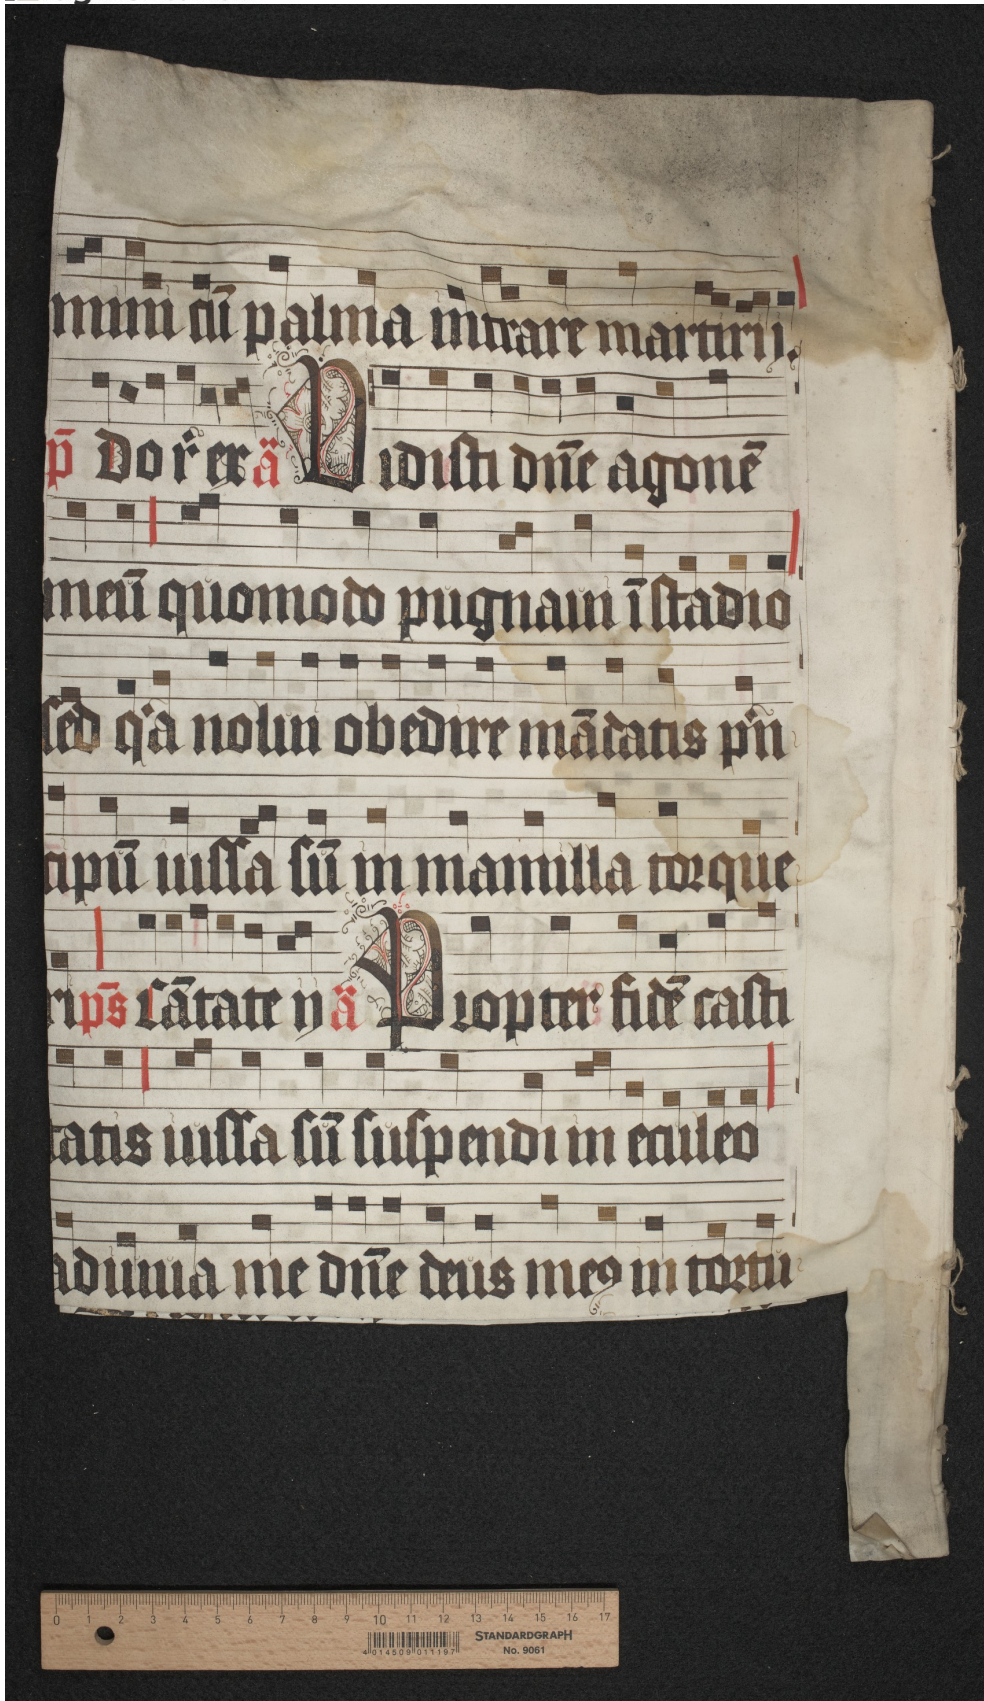 mini cū palma intrare martirij.
p̄ Do r̄ ex ā Vidisti dn̄e agonē
meū quomodo pugnaui ī stadio
sed qͥa nolui obedire mādatis pn̄
cipū iussa sū in mamilla torque
ri ps̄ Cātate ij ā Propter fidē casti
tatis iussa sū suspendi in eculeo
adiuua me dn̄e deus meꝰ in tortu
0 1 2 3 4 5 6 7 8 9 10 11 12 13 14 15 16 17
STANDARDGRAPH
No. 9061
4 014509 011197